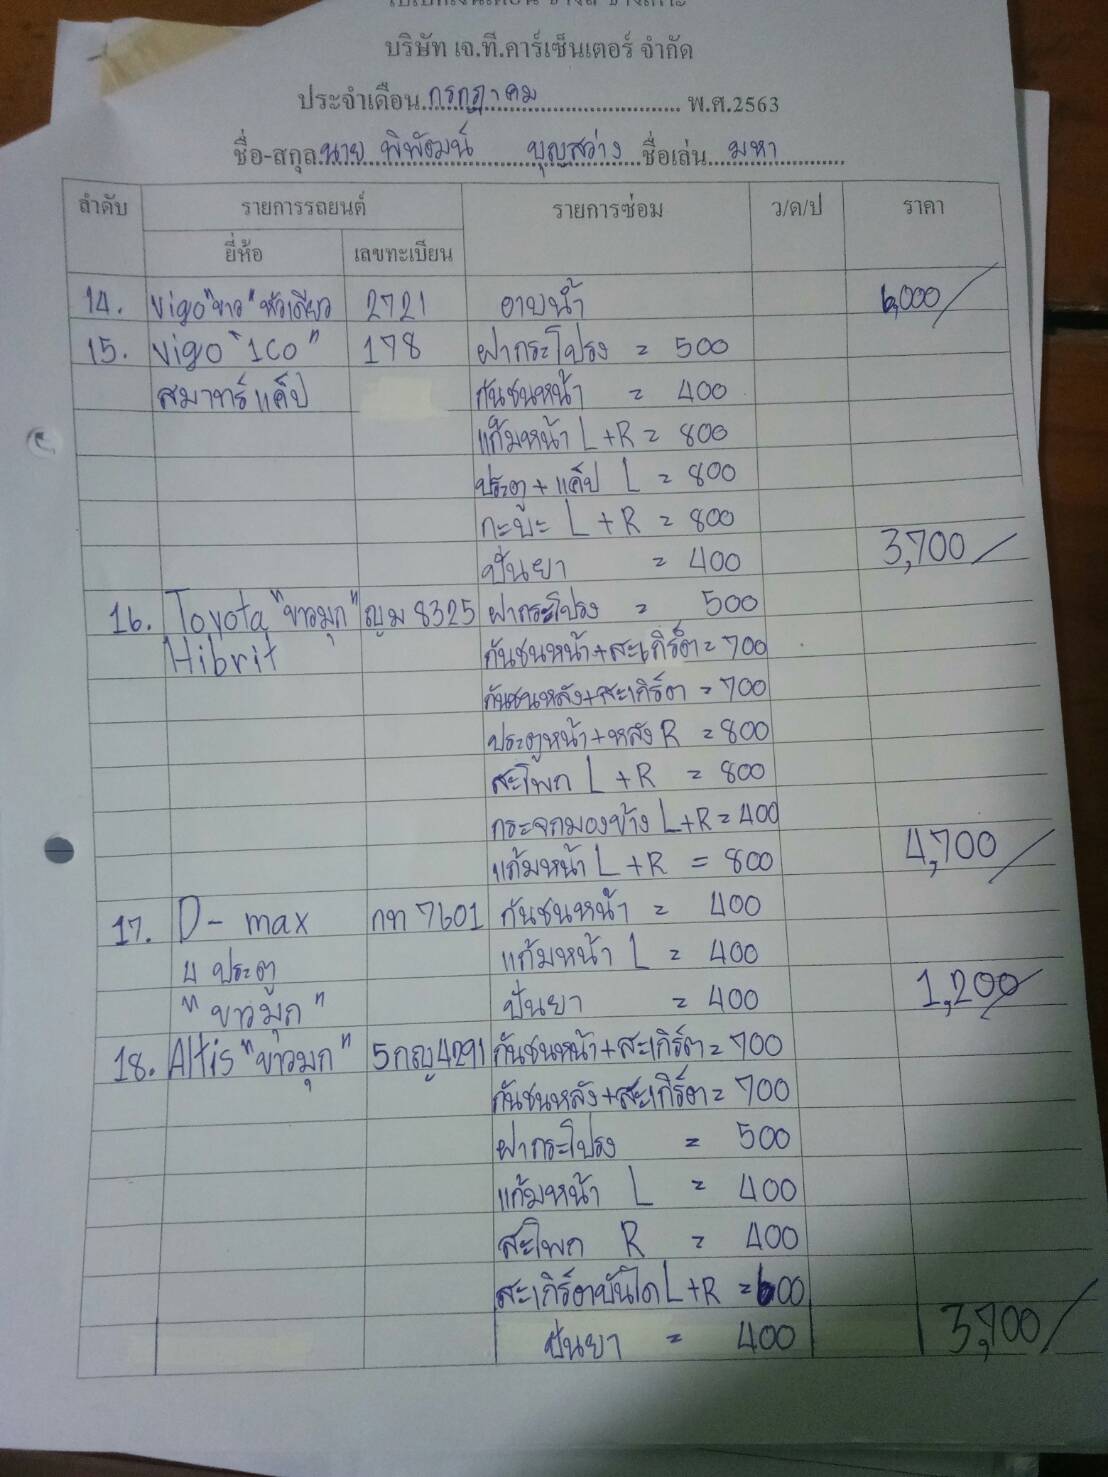 บริษัท เจ.ที.คาร์เซ็นเตอร์ จำกัด
ประจำเดือน กรกฎาคม พ.ศ.2563
ชื่อ-สกุล นาย พิพัฒน์ บุญสว่าง ชื่อเล่น มหา
ลำดับ รายการรถยนต์ รายการซ่อม ว/ด/ป ราคา
ยี่ห้อ เลขทะเบียน
14. Vigo "ขาว" หัวเดียว 2721 อาบน้ำ 6,000/
15. Vigo "1CO" 178 ฝากระโปรง = 500
สมาทร์แค็ป กันชนหน้า = 400
แก้มหน้า L+R = 800
ประตู + แค็ป L = 800
กะบะ L+R = 800
ปั่นยา = 400 3,700/
16. Toyota "ขาวมุก" ญม 8325 ฝากระโปรง = 500
Hibrit กันชนหน้า+สะเกิร์ต = 700
กันชนหลัง+สะเกิร์ต = 700
ประตูหน้า+หลัง R = 800
สะโพก L+R = 800
กระจกมองข้าง L+R = 400
แก้มหน้า L+R = 800 4,700/
17. D-max กท 7601 กันชนหน้า = 400
4 ประตู แก้มหน้า L = 400
"ขาวมุก" ปั่นยา = 400 1,200/
18. Altis "ขาวมุก" 5กญ4291 กันชนหน้า+สะเกิร์ต = 700
กันชนหลัง+สะเกิร์ต = 700
ฝากระโปรง = 500
แก้มหน้า L = 400
สะโพก R = 400
สะเกิร์ตบันได L+R = 600
ปั่นยา = 400 3,700/